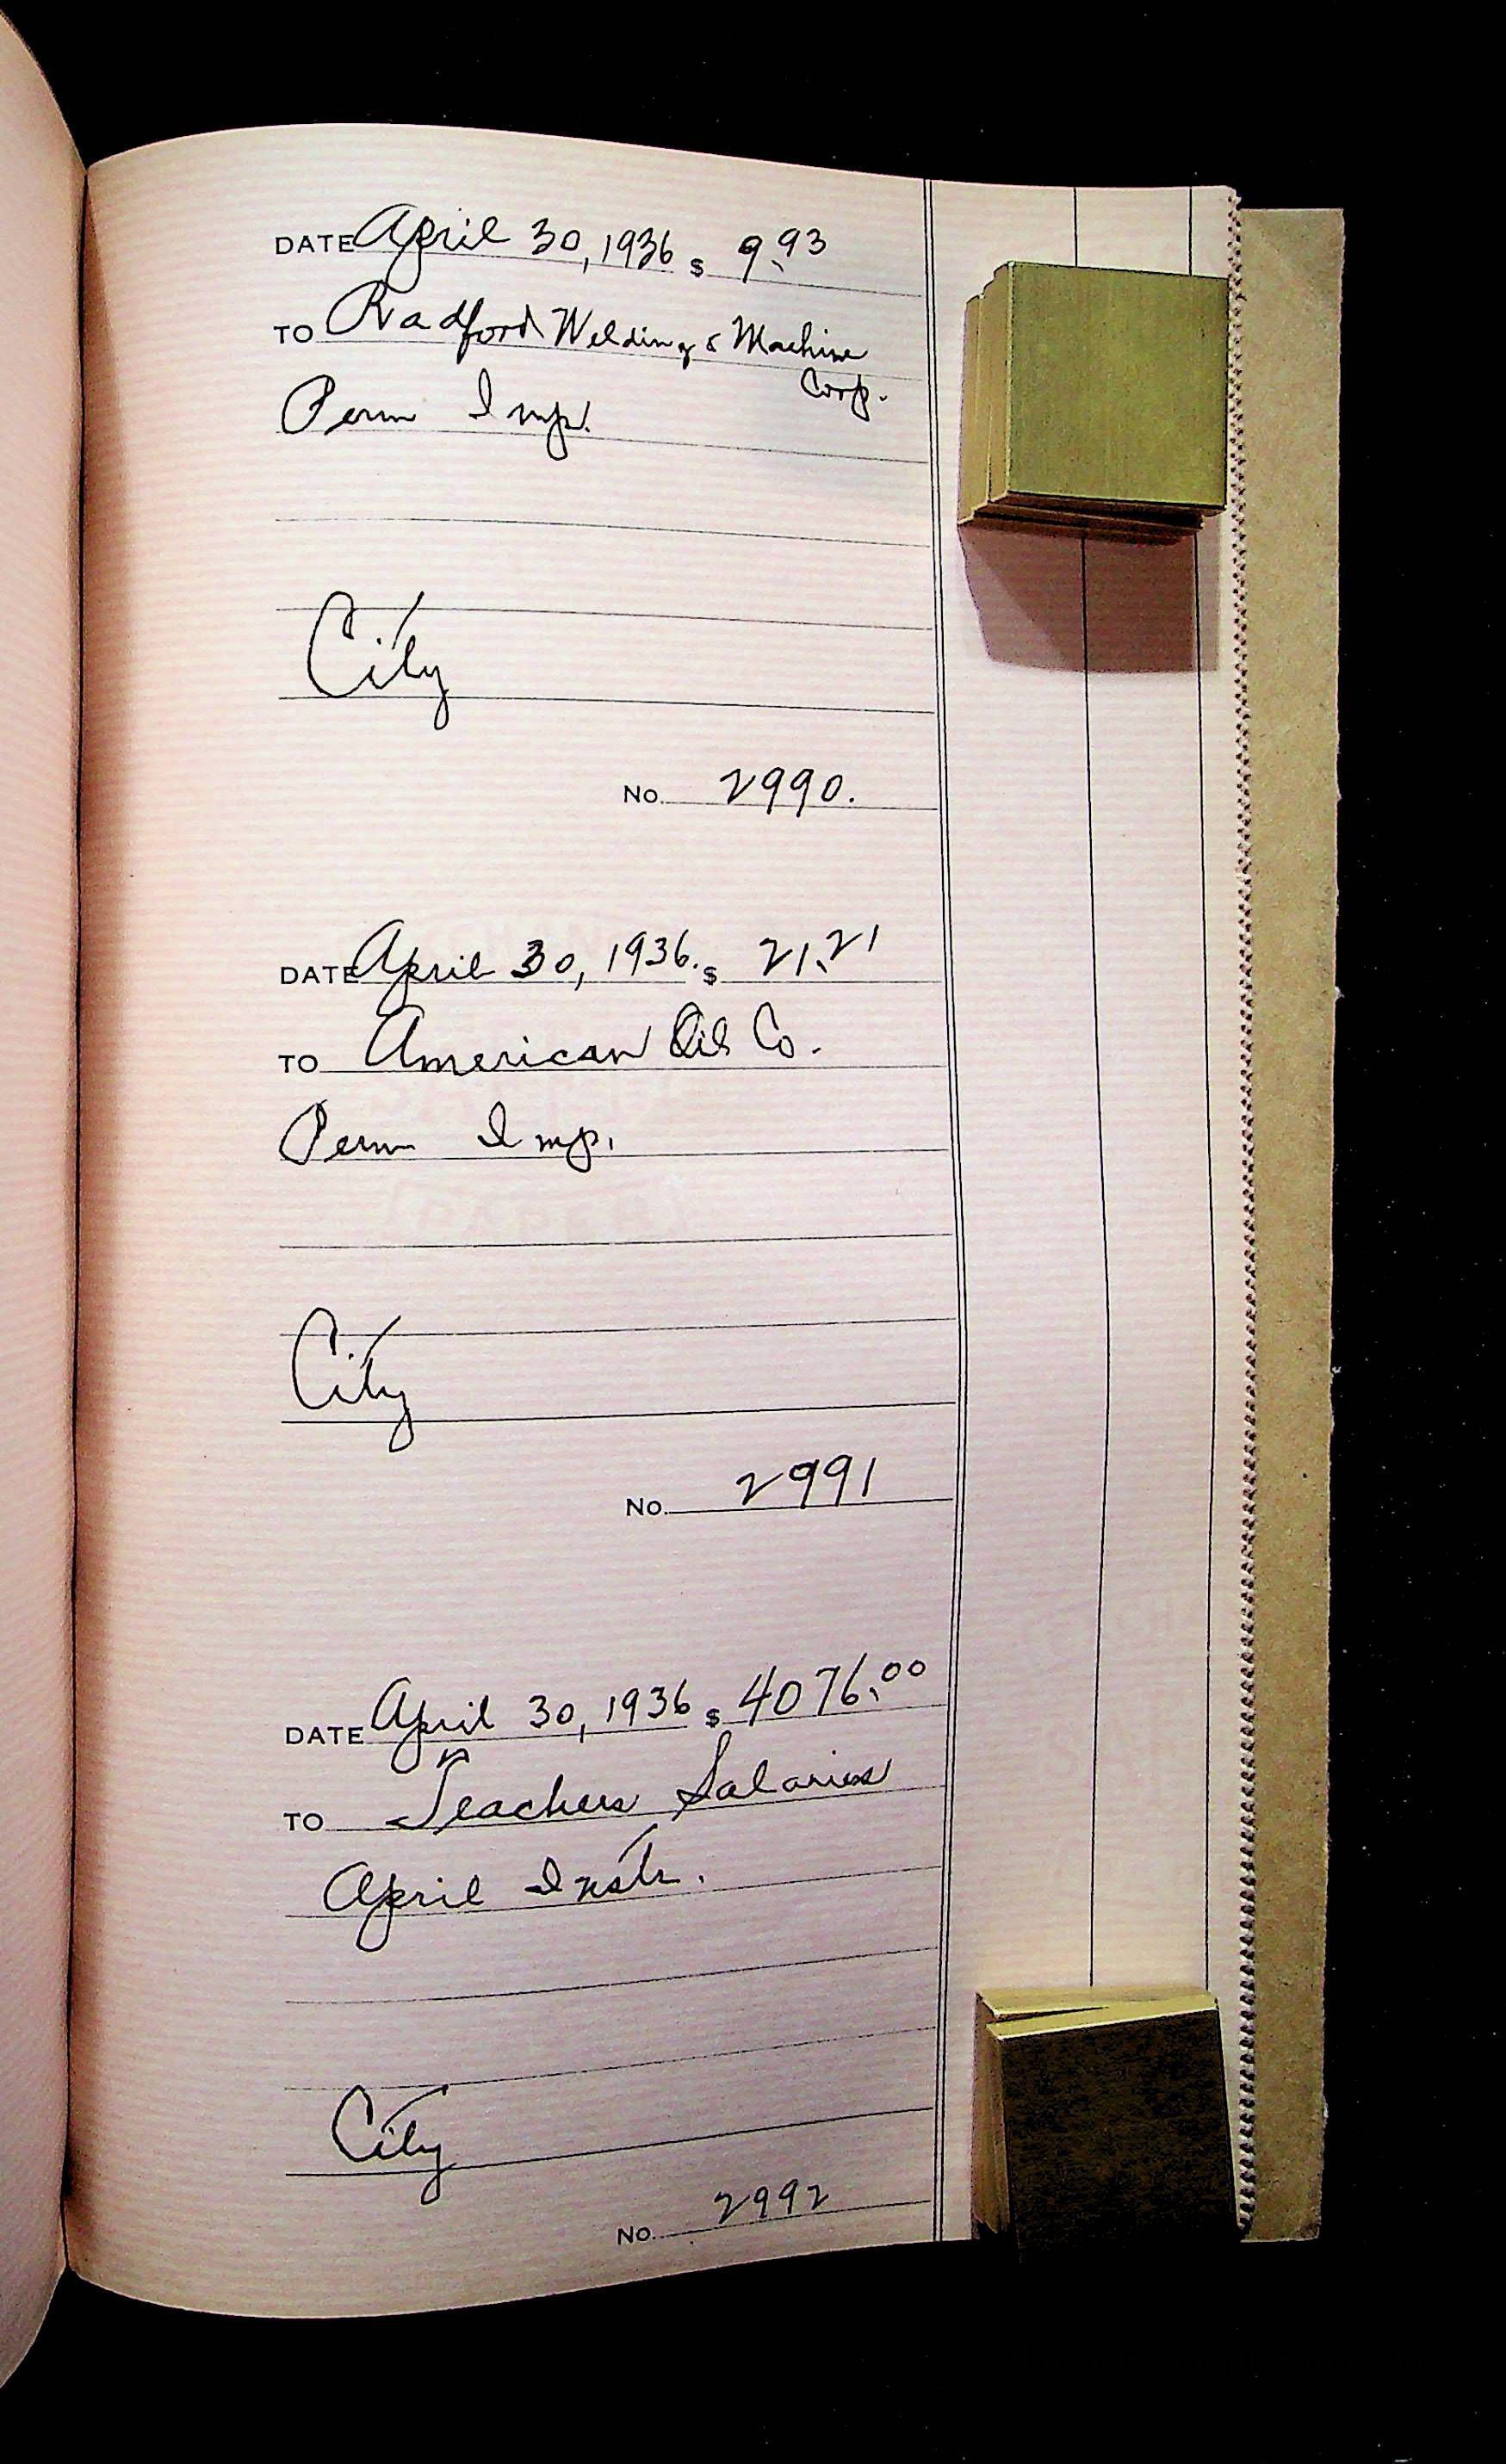 DATE April 30, 1936 $ 9.93
TO Radford Welding & Machine
Corp.
Perm Imp.
City
No. 2990.
DATE April 30, 1936. $ 21.21
TO American Oil Co.
Perm Imp.
City
No. 2991
DATE April 30, 1936 $ 4076.00
TO Teachers Salaries
April Instr.
City
No. 2992